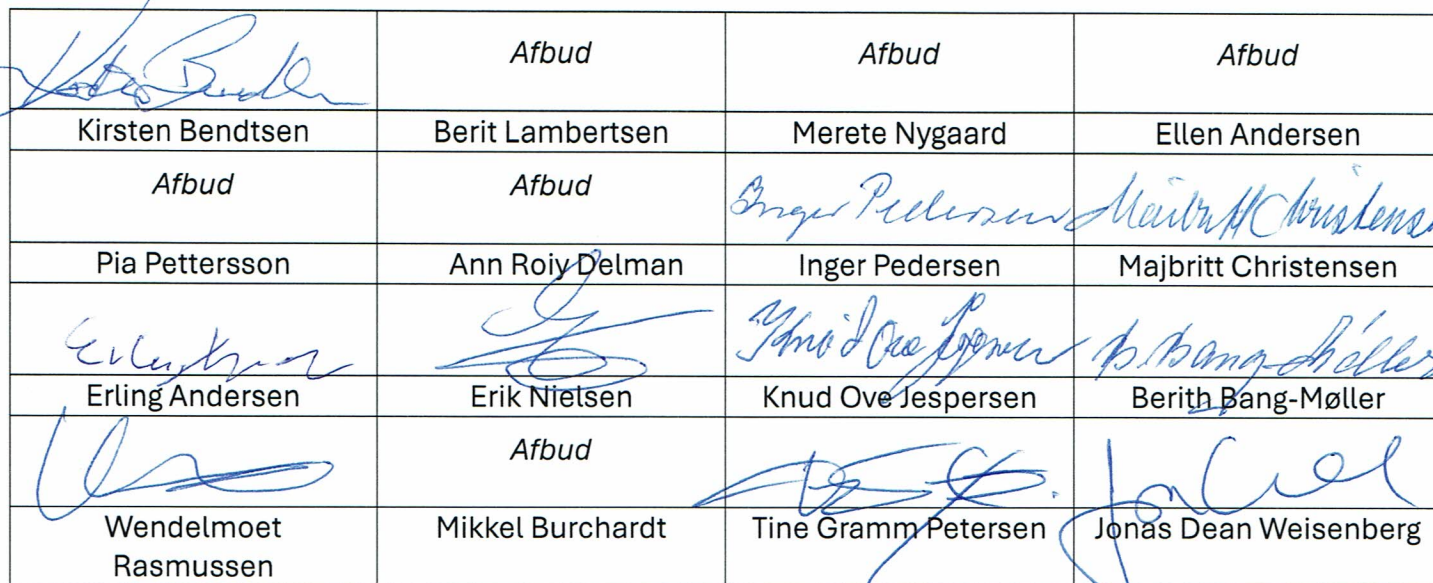 Kirsten Bendtsen Afbud Afbud Afbud
Kirsten Bendtsen Berit Lambertsen Merete Nygaard Ellen Andersen
Afbud Afbud Inger Pedersen Majbritt Christens
Pia Pettersson Ann Roiy Delman Inger Pedersen Majbritt Christensen
Knud Ove Jespersen B. Bang-Møller
Erling Andersen Erik Nielsen Knud Ove Jespersen Berith Bang-Møller
Afbud
Wendelmoet Mikkel Burchardt Tine Gramm Petersen Jonas Dean Weisenberg
Rasmussen